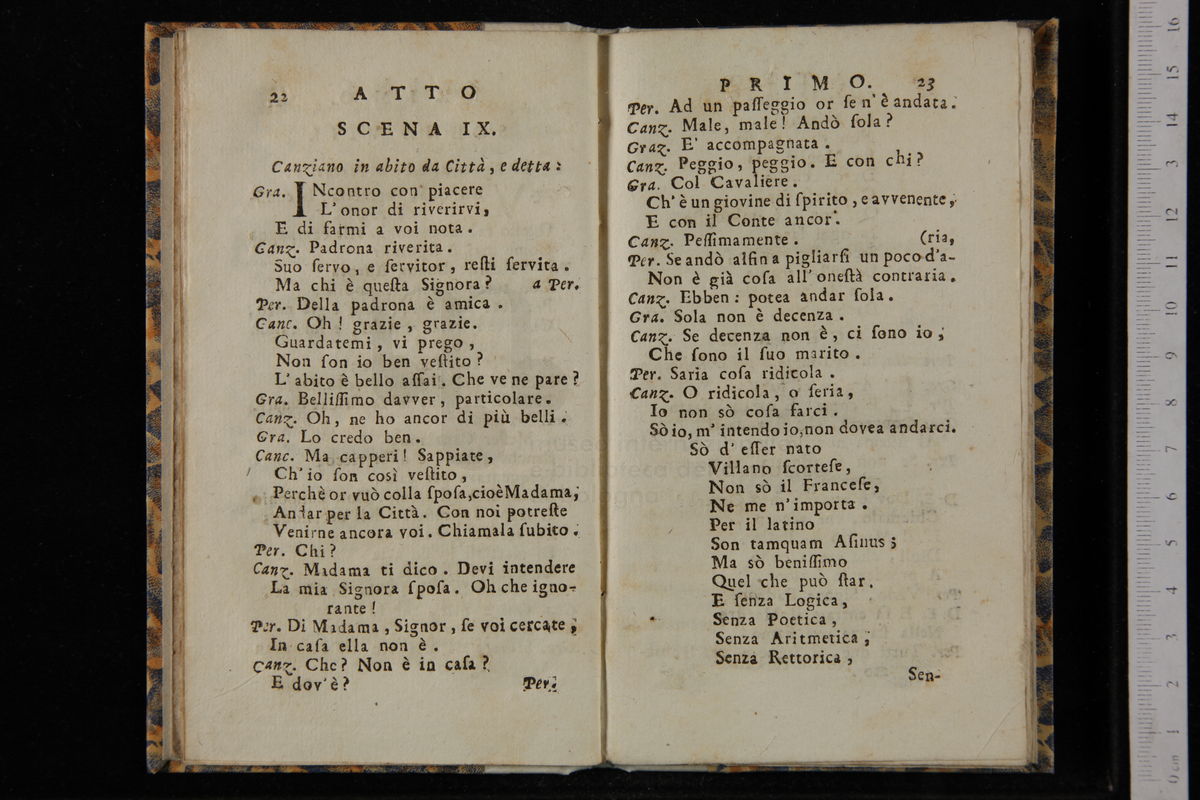 22 ATTO
SCENA IX.
Canziano in abito da Città, e detta :
Gra. INcontro con piacere
L'onor di riverirvi,
E di farmi a voi nota .
Canz. Padrona riverita .
Suo ſervo, e ſervitor, reſti ſervita .
Ma chi è queſta Signora ? a Per.
Per. Della padrona è amica .
Canc. Oh ! grazie , grazie.
Guardatemi , vi prego ,
Non ſon io ben veſtito ?
L' abito è bello aſſai . Che ve ne pare ?
Gra. Belliſſimo davver , particolare .
Canz. Oh, ne ho ancor di più belli .
Gra. Lo credo ben .
Canc. Ma capperi ! Sappiate ,
Ch' io ſon così veſtito ,
Perchè or vuò colla ſpoſa,cioè Madama,
Andar per la Città . Con noi potreſte
Venirne ancora voi . Chiamala ſubito .
Per. Chi ?
Canz. Madama ti dico . Devi intendere
La mia Signora ſpoſa . Oh che igno-
rante !
Per. Di Madama , Signor , ſe voi cercate ,
In caſa ella non è .
Canz. Che ? Non è in caſa ?
E dov'è ? Per.
PRIMO. 23
Per. Ad un paſſeggio or ſe n' è andata .
Canz. Male, male ! Andò ſola ?
Graz. E' accompagnata .
Canz. Peggio, peggio. E con chi ?
Gra. Col Cavaliere .
Ch' è un giovine di ſpirito , e avvenente ,
E con il Conte ancor .
Canz. Peſſimamente . (ria,
Per. Se andò alfin a pigliarſi un poco d'a-
Non è già coſa all' oneſtà contraria .
Canz. Ebben : potea andar ſola .
Gra. Sola non è decenza .
Canz. Se decenza non è , ci ſono io ,
Che ſono il ſuo marito .
Per. Saria coſa ridicola .
Canz. O ridicola , o ſeria ,
Io non sò coſa farci .
Sò io, m' intendo io, non dovea andarci.
Sò d' eſſer nato
Villano ſcorteſe ,
Non sò il Franceſe,
Ne me n' importa .
Per il latino
Son tamquam Aſinus ;
Ma sò beniſſimo
Quel che può ſtar .
E ſenza Logica ,
Senza Poetica ,
Senza Aritmetica ,
Senza Rettorica ,
Sen-
16
15
14
13
12
11
10
9
8
7
6
5
4
3
2
1
0 cm